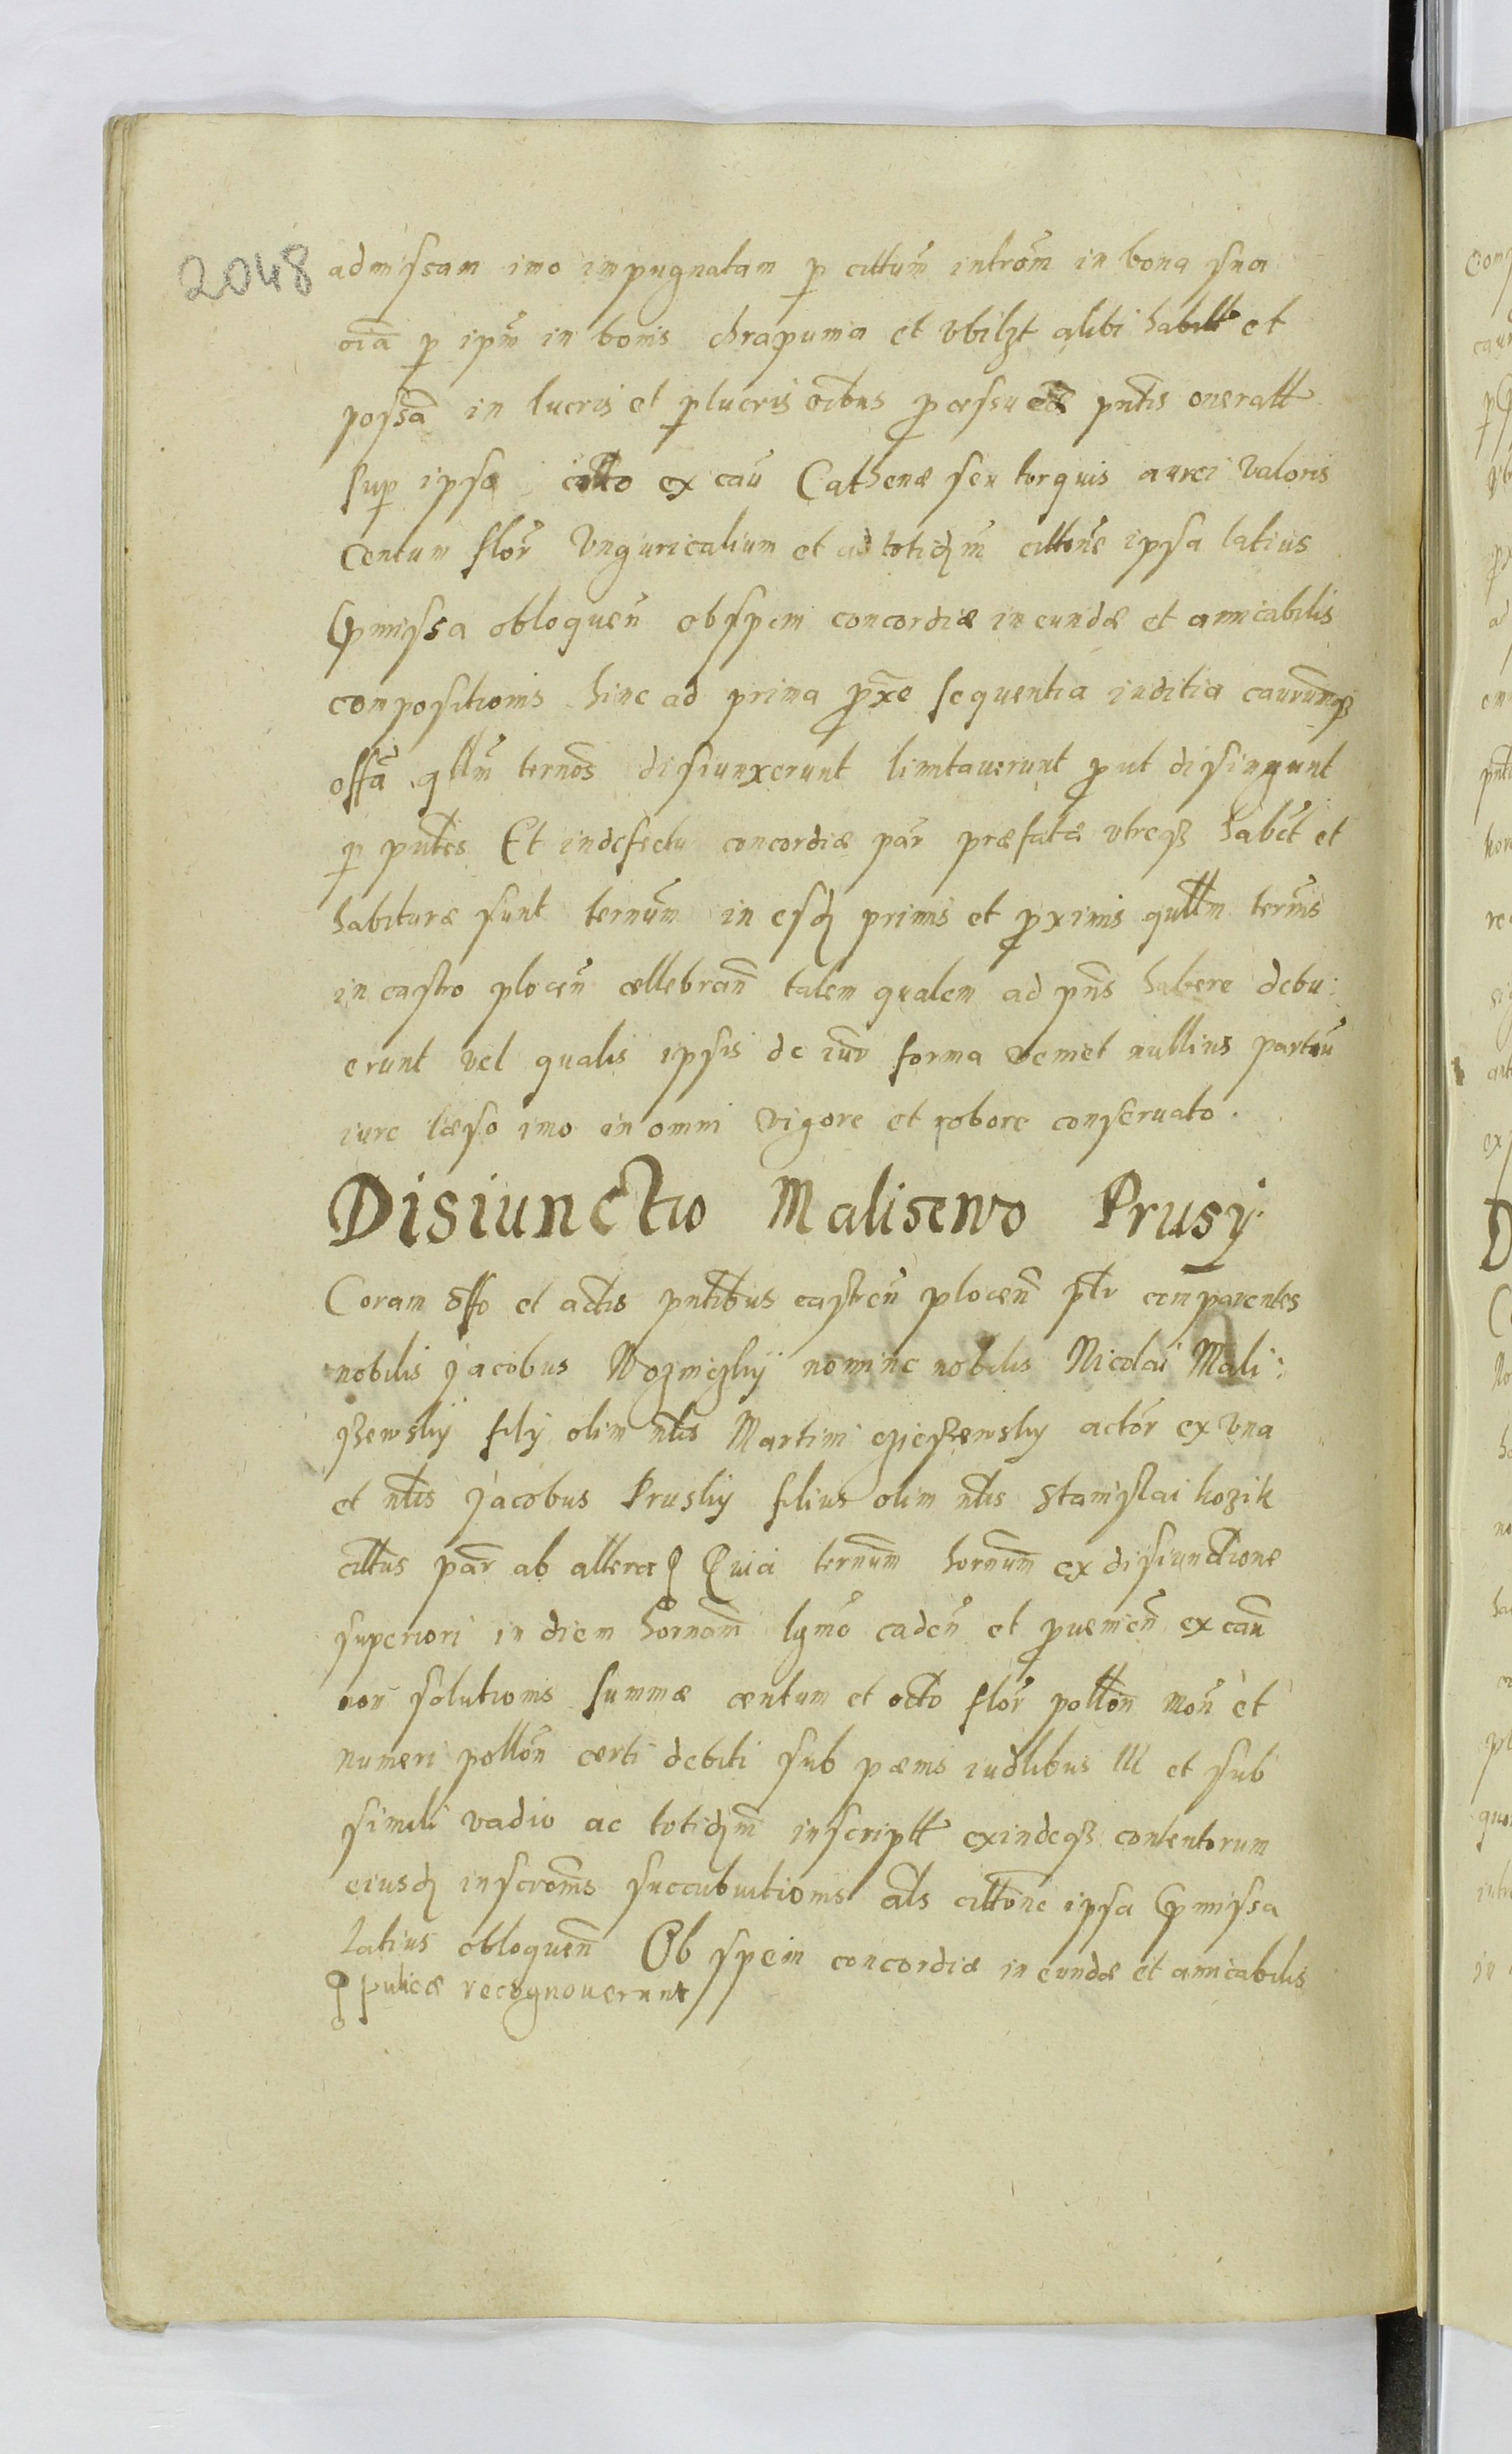 2048
admissam imo impugnatam p cittum introm in bona sua
oia p ipm in bonis chrapunia et vbilzt alibi habitt et
possa in lucris et plucris oibus pcessu eiæ pntis oneratt
sup ipso citto ex cau Cathenæ seu torquis aurei valoris
Centum flor Vnguricalium et ad totidm cittone ipsa latius
Præmissa obloquen ob spem concordiæ ineundæ et amicabilis
compositionis hinc ad prima pxe sequentia iuditia caurumqз
offa qllm ternos disiunxerunt limitaverunt put disiungunt
p pntes Et in defectu concordiæ par præfatæ vtreqз habet et
habituræ sunt ternum in esd primis et pximis qullm ternis
in castro plocen cellebran talem qualem ad pns habere debu:
erunt vel qualis ipsis de iur forma veniet nullius partiu
iure læso imo in omni vigore et robore conservato.
Disiunctio Malisewo Prusy
Coram offo et actis pntibus castren plocen pltr comparentes
nobilis Jacobus Wozniczky nomine nobilis Nicolai Mali:
szewsky fily olim nlis Martini czieszewsky actor ex vna
et nlis Jacobus Prusky filius olim nlis Stanislai kozik
cittus par ab altera Quia ternum hornum ex disiunctione
superiori in diem hornam lgme caden et pvenien ex cau
non solutionis summæ centum et octo flor pollon mon et
numeri pollon certi debiti sub pænis iudlibus III et sub
simili vadio ac totidm inscriptt exindeqз contentorum
eiusd inscronis succubuitionis als cittone ipsa Præmissa
latius obloquen Ob spem concordiæ ineundæ et amicabilis
publicæ recognoverunt